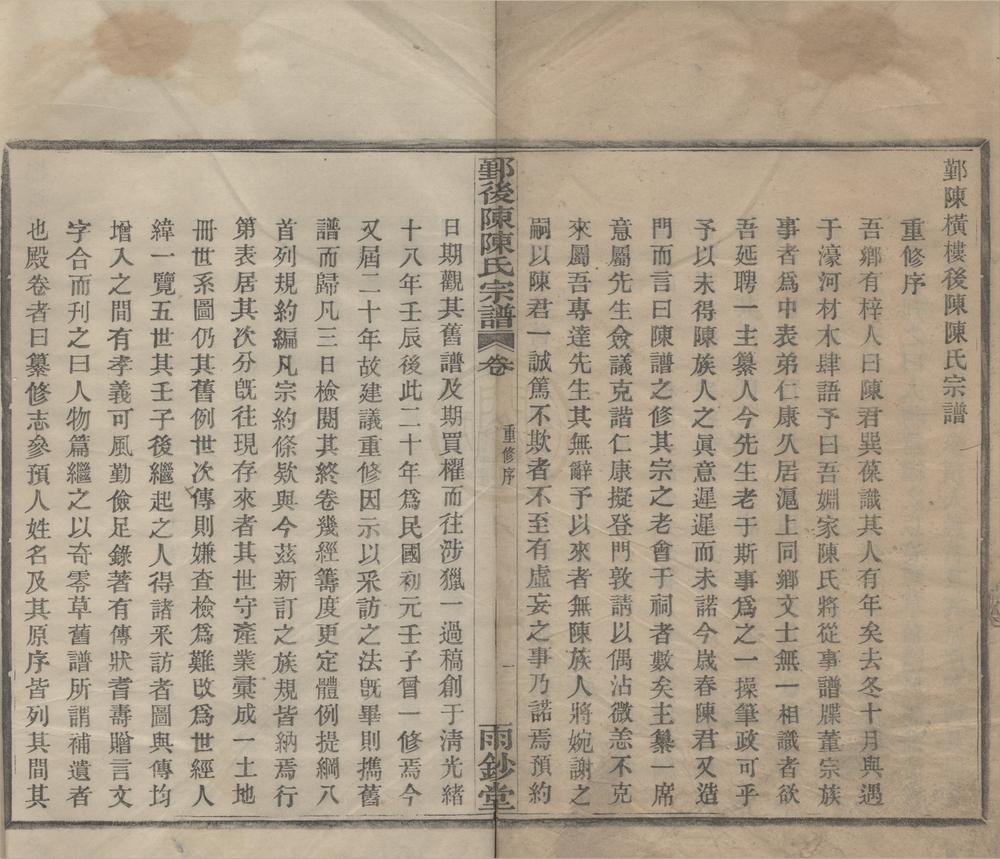 鄞陳橫樓後陳陳氏宗譜
重修序
吾鄉有梓人曰陳君巽葆識其人有年矣去冬十月與遇
于濠河材木肆語予曰吾婣家陳氏將從事譜牒董宗族
事者爲中表弟仁康久居滬上同鄉文士無一相識者欲
吾延聘一主纂人今先生老于斯事爲之一操筆政可乎
予以未得陳族人之眞意遲遲而未諾今歲春陳君又造
門而言曰陳譜之修其宗之老會于祠者數矣主纂一席
意屬先生僉議克諧仁康擬登門敦請以偶沾微恙不克
來屬吾專達先生其無辭予以來者無陳族人將婉謝之
嗣以陳君一誠篤不欺者不至有虛妄之事乃諾焉預約
鄞後陳陳氏宗譜 卷 重修序 一 雨鈔堂
日期觀其舊譜及期買櫂而往涉獵一過稿創于淸光緒
十八年壬辰後此二十年爲民國初元壬子曾一修焉今
又屆二十年故建議重修因示以采訪之法旣畢則攜舊
譜而歸凡三日檢閱其終卷幾經籌度更定體例提綱八
首列規約編凡宗約條欵與今茲新訂之族規皆納焉行
第表居其次分旣往現存來者其世守產業彙成一土地
冊世系圖仍其舊例世次傳則嫌查檢爲難改爲世經人
緯一覽五世其壬子後繼起之人得諸釆訪者圖與傳均
增入之間有孝義可風勤儉足錄著有傳狀耆壽贈言文
字合而刊之曰人物篇繼之以奇零草舊譜所謂補遺者
也殿卷者曰纂修志參預人姓名及其原序皆列其間其